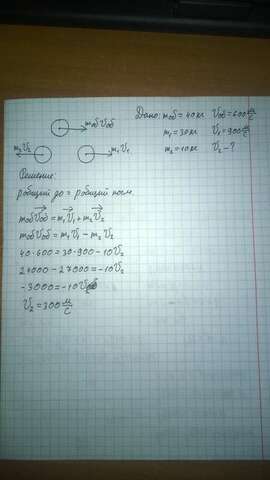 mобVоб
Дано: mоб = 40 кг Vоб = 600 м/с
m₁ = 30 кг V₁ = 900 м/с
m₂ = 10 кг V₂ - ?
m₂V₂
m₁V₁
Решение:
pобщий до = pобщий посл.
mобVоб = m₁V₁ + m₂V₂
mобVоб = m₁V₁ - m₂V₂
40·600 = 30·900 - 10V₂
24000 - 27000 = -10V₂
-3000 = -10V₂
V₂ = 300 м/с